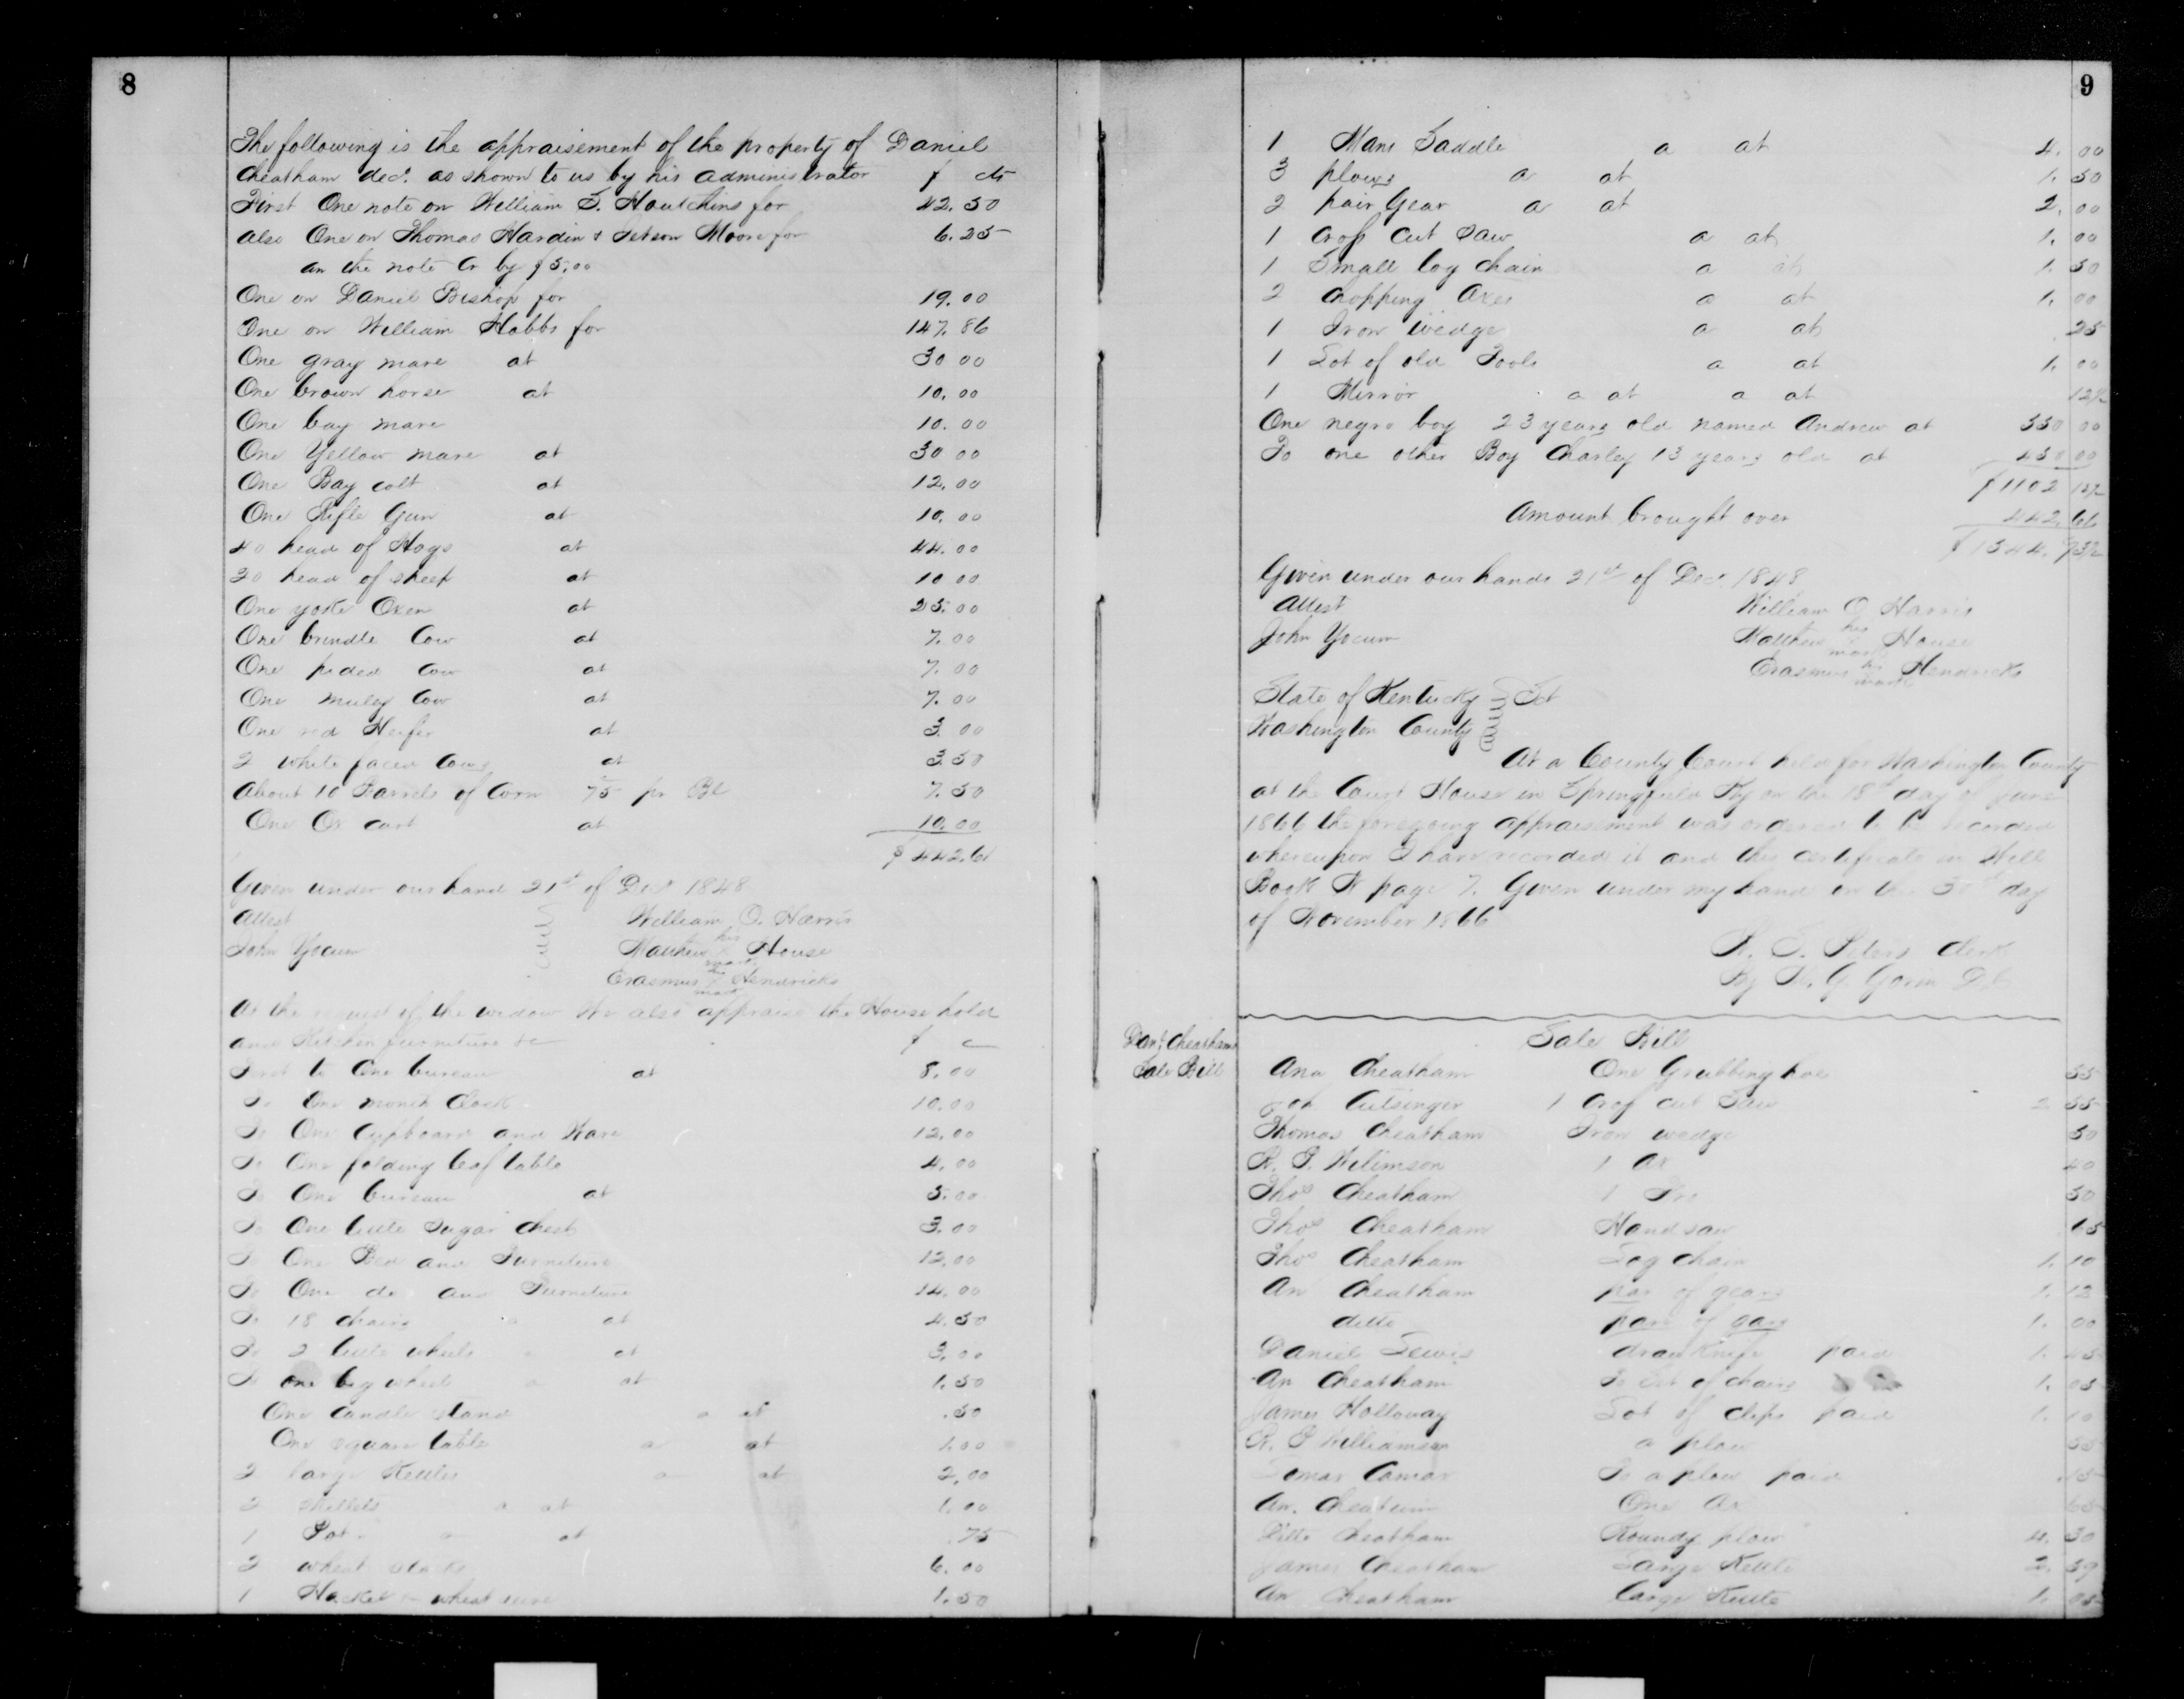 8
The following is the appraisement of the property of Daniel
Cheatham dec'd. as shown to us by his administrator $ cts
First One note on William S. Houtchins for 42.50
also One on Thomas Hardin & Moore for 6.25
on the note Cr by $5.00
One on Daniel Bishop for 19.00
One on William Hobbs for 147.86
One gray mare at 30 00
One brown horse at 10.00
One bay mare 10.00
One Yellow mare at 30 00
One Bay colt at 12.00
One Rifle Gun at 10.00
40 head of Hogs at 44.00
20 head of sheep at 10 00
One yoke Oxen at 25.00
One brindle Cow at 7.00
One pided Cow at 7.00
One muley Cow at 7.00
One red Heifer at 3 00
2 white faced Cows at 3.50
About 10 Barrels of Corn 75 pr Bl 7.50
One Ox cart at 10.00
$ 442.61
Given under our hand 21st of Dec 1848
Attest William O. Harris
John Yocum Matthew his mark House
Erasmus his mark Hendricks
At the request of the widow We also appraise the House hold
and Kitchen furniture &c $ c
First to One bureau at 8.00
To One month Clock 10.00
To One Cupboard and Ware 12.00
To One folding leaf table 4.00
To One bureau at 5.00
To One little Sugar Chest 3.00
To One Bed and Furniture 12.00
To One do and Furniture 14.00
To 18 chairs at 4.50
To 2 little wheels at 3.00
To one big wheel a at 1.50
One candle stand a at .50
One square table a at 1.00
2 large Kettles a at 2.00
2 Skillets a at 1.00
1 Pot a at .75
2 wheat stacks 6.00
1 wheat 1.50
9
1 Mans Saddle a at 4.00
3 plows a at 1.50
2 pair Gear a at 2.00
1 Crop cut Saw a at 1.00
1 Small log chain a at 1.50
2 Chopping Axes a at 1.00
1 Iron wedge a at 25
1 Lot of old Tools a at 1.00
1 Mirror a at a at 12½
One negro boy 23 years old named Andrew at 550 00
To one other Boy Charley 13 years old at 450 00
$1102 12½
Amount brought over 442.61
$1544.73½
Given under our hands 21st of Dec 1848
Attest William O Harris
John Yocum Matthew his mark House
Erasmus his mark Hendricks
State of Kentucky Sct
Washington County
At a County Court held for Washington County
at the Court House in Springfield Ky on the 18th day of June
1866 the foregoing appraisement was ordered to be recorded
whereupon I have recorded it and this certificate in Will
Book page 7. Given under my hand on the 30th day
of November 1866
Clerk
By
Sale Bill
Danl Cheathams
Sale Bill
Ana Cheatham One Grubbing hoe 55
Cutsinger 1 Crop cut Saw 2 55
Thomas Cheatham Iron wedge 50
R. P. 1 Ax 40
Thos Cheatham 1 50
Thos Cheatham Hand saw 65
Thos Cheatham Log chain 1.10
An Cheatham par of gears 1.12
ditto pare of gars 1.00
Daniel Lewis draw knife paid 1.
An Cheatham To Set of chairs 1.05
James Holloway Lot of clips paid 1.10
R. P Williamson a plow 55
To a plow paid .15
An. One Ax 65
Cheatham plow 4.50
James Cheatham Large Kettle 2.
An Cheatham large Kettle 1.05